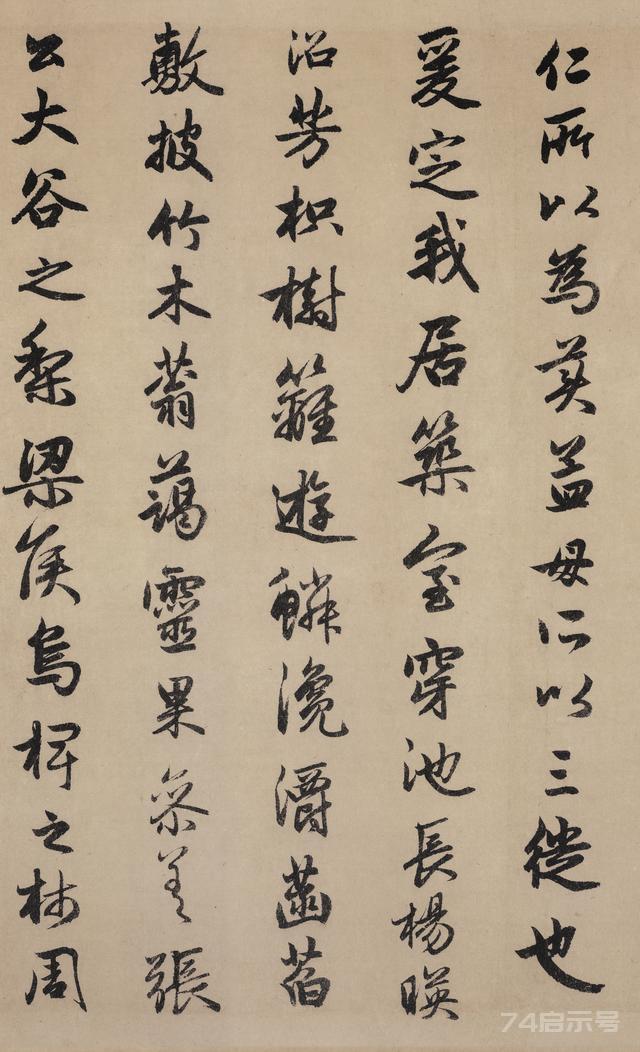 仁所以為美孟母所以三徙也
爰定我居築室穿池長楊暎
沼芳枳樹籬遊鱗瀺灂菡萏
敷披竹木蓊藹靈果參差張
公大谷之棃梁侯烏椑之柿周
74启示号